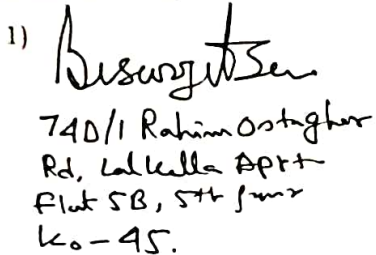 1)
Biswajit Sen
74D/1 Rahim Ostagher
Rd, Lalkella Aprt
Flat 5B, 5th floor
Ko-45.